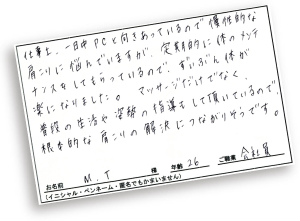 仕事上、一日中PCと向きあっているので慢性的な
肩こりに悩んでいますが、定期的に体のメンテ
ナンスをしてもらっているので、ずいぶん体が
楽になりました。 マッサージだけでなく、
普段の生活や姿勢の指導をして頂いているので
根本的な肩こりの解決につながりそうです。
お名前 M.T 様 年齢 26 ご職業 会社員
(イニシャル・ペンネーム・匿名でもかまいません)